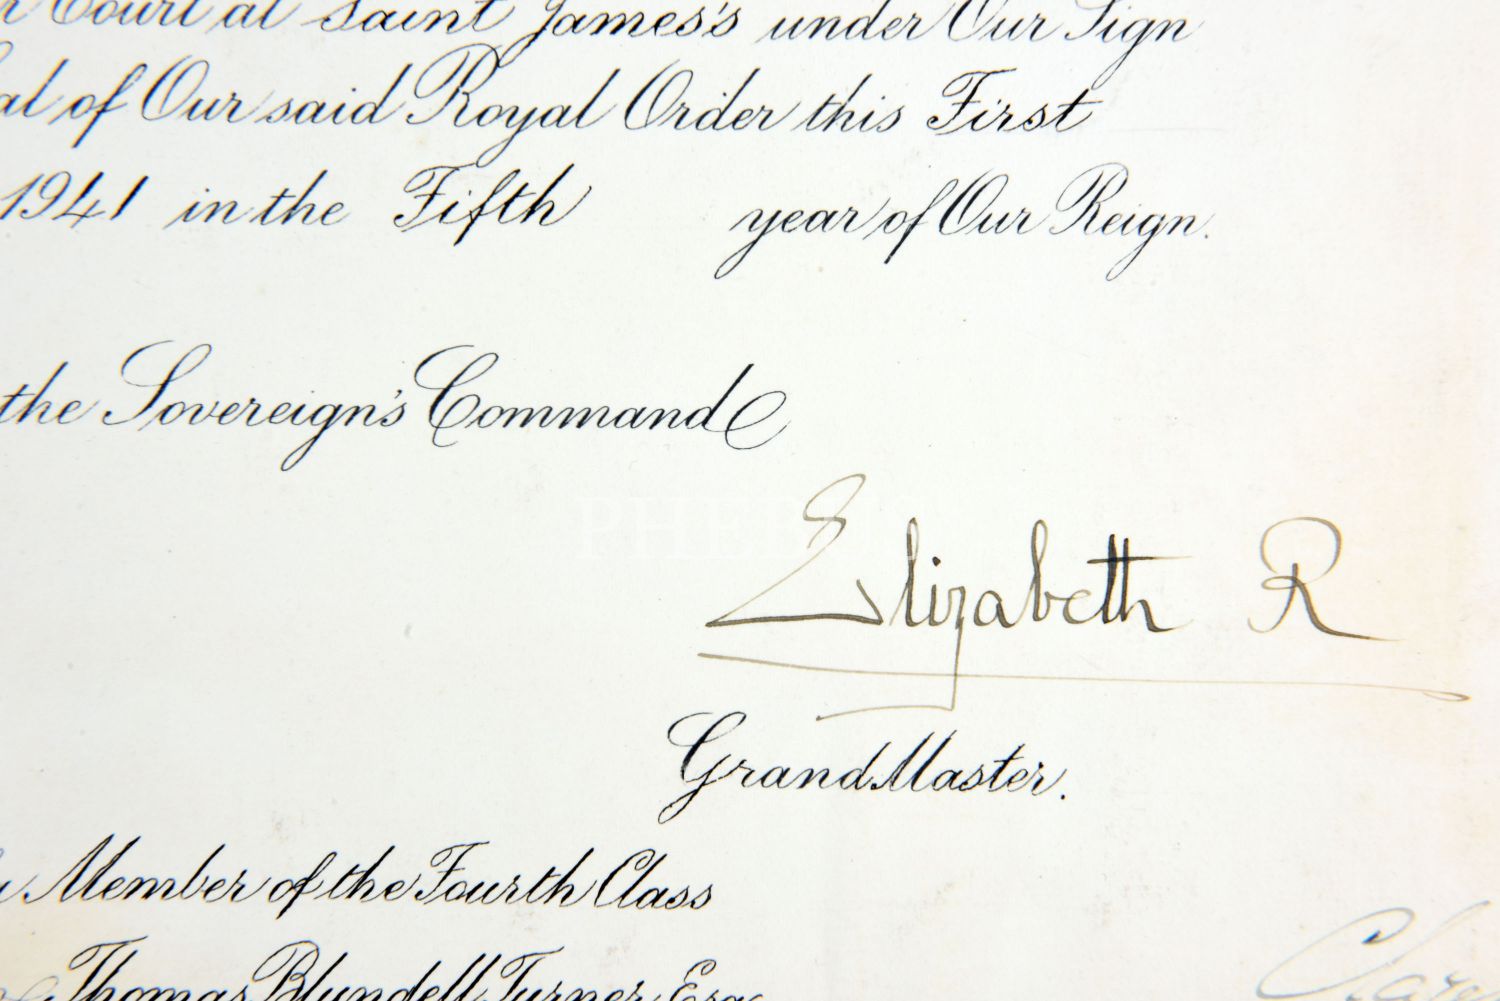 Court at Saint James's under Our Sign
of Our said Royal Order this First
1941 in the Fifth year of Our Reign.
the Sovereign's Command
Elizabeth R
Grand Master.
Member of the Fourth Class
Thomas Blundell Turner Esq